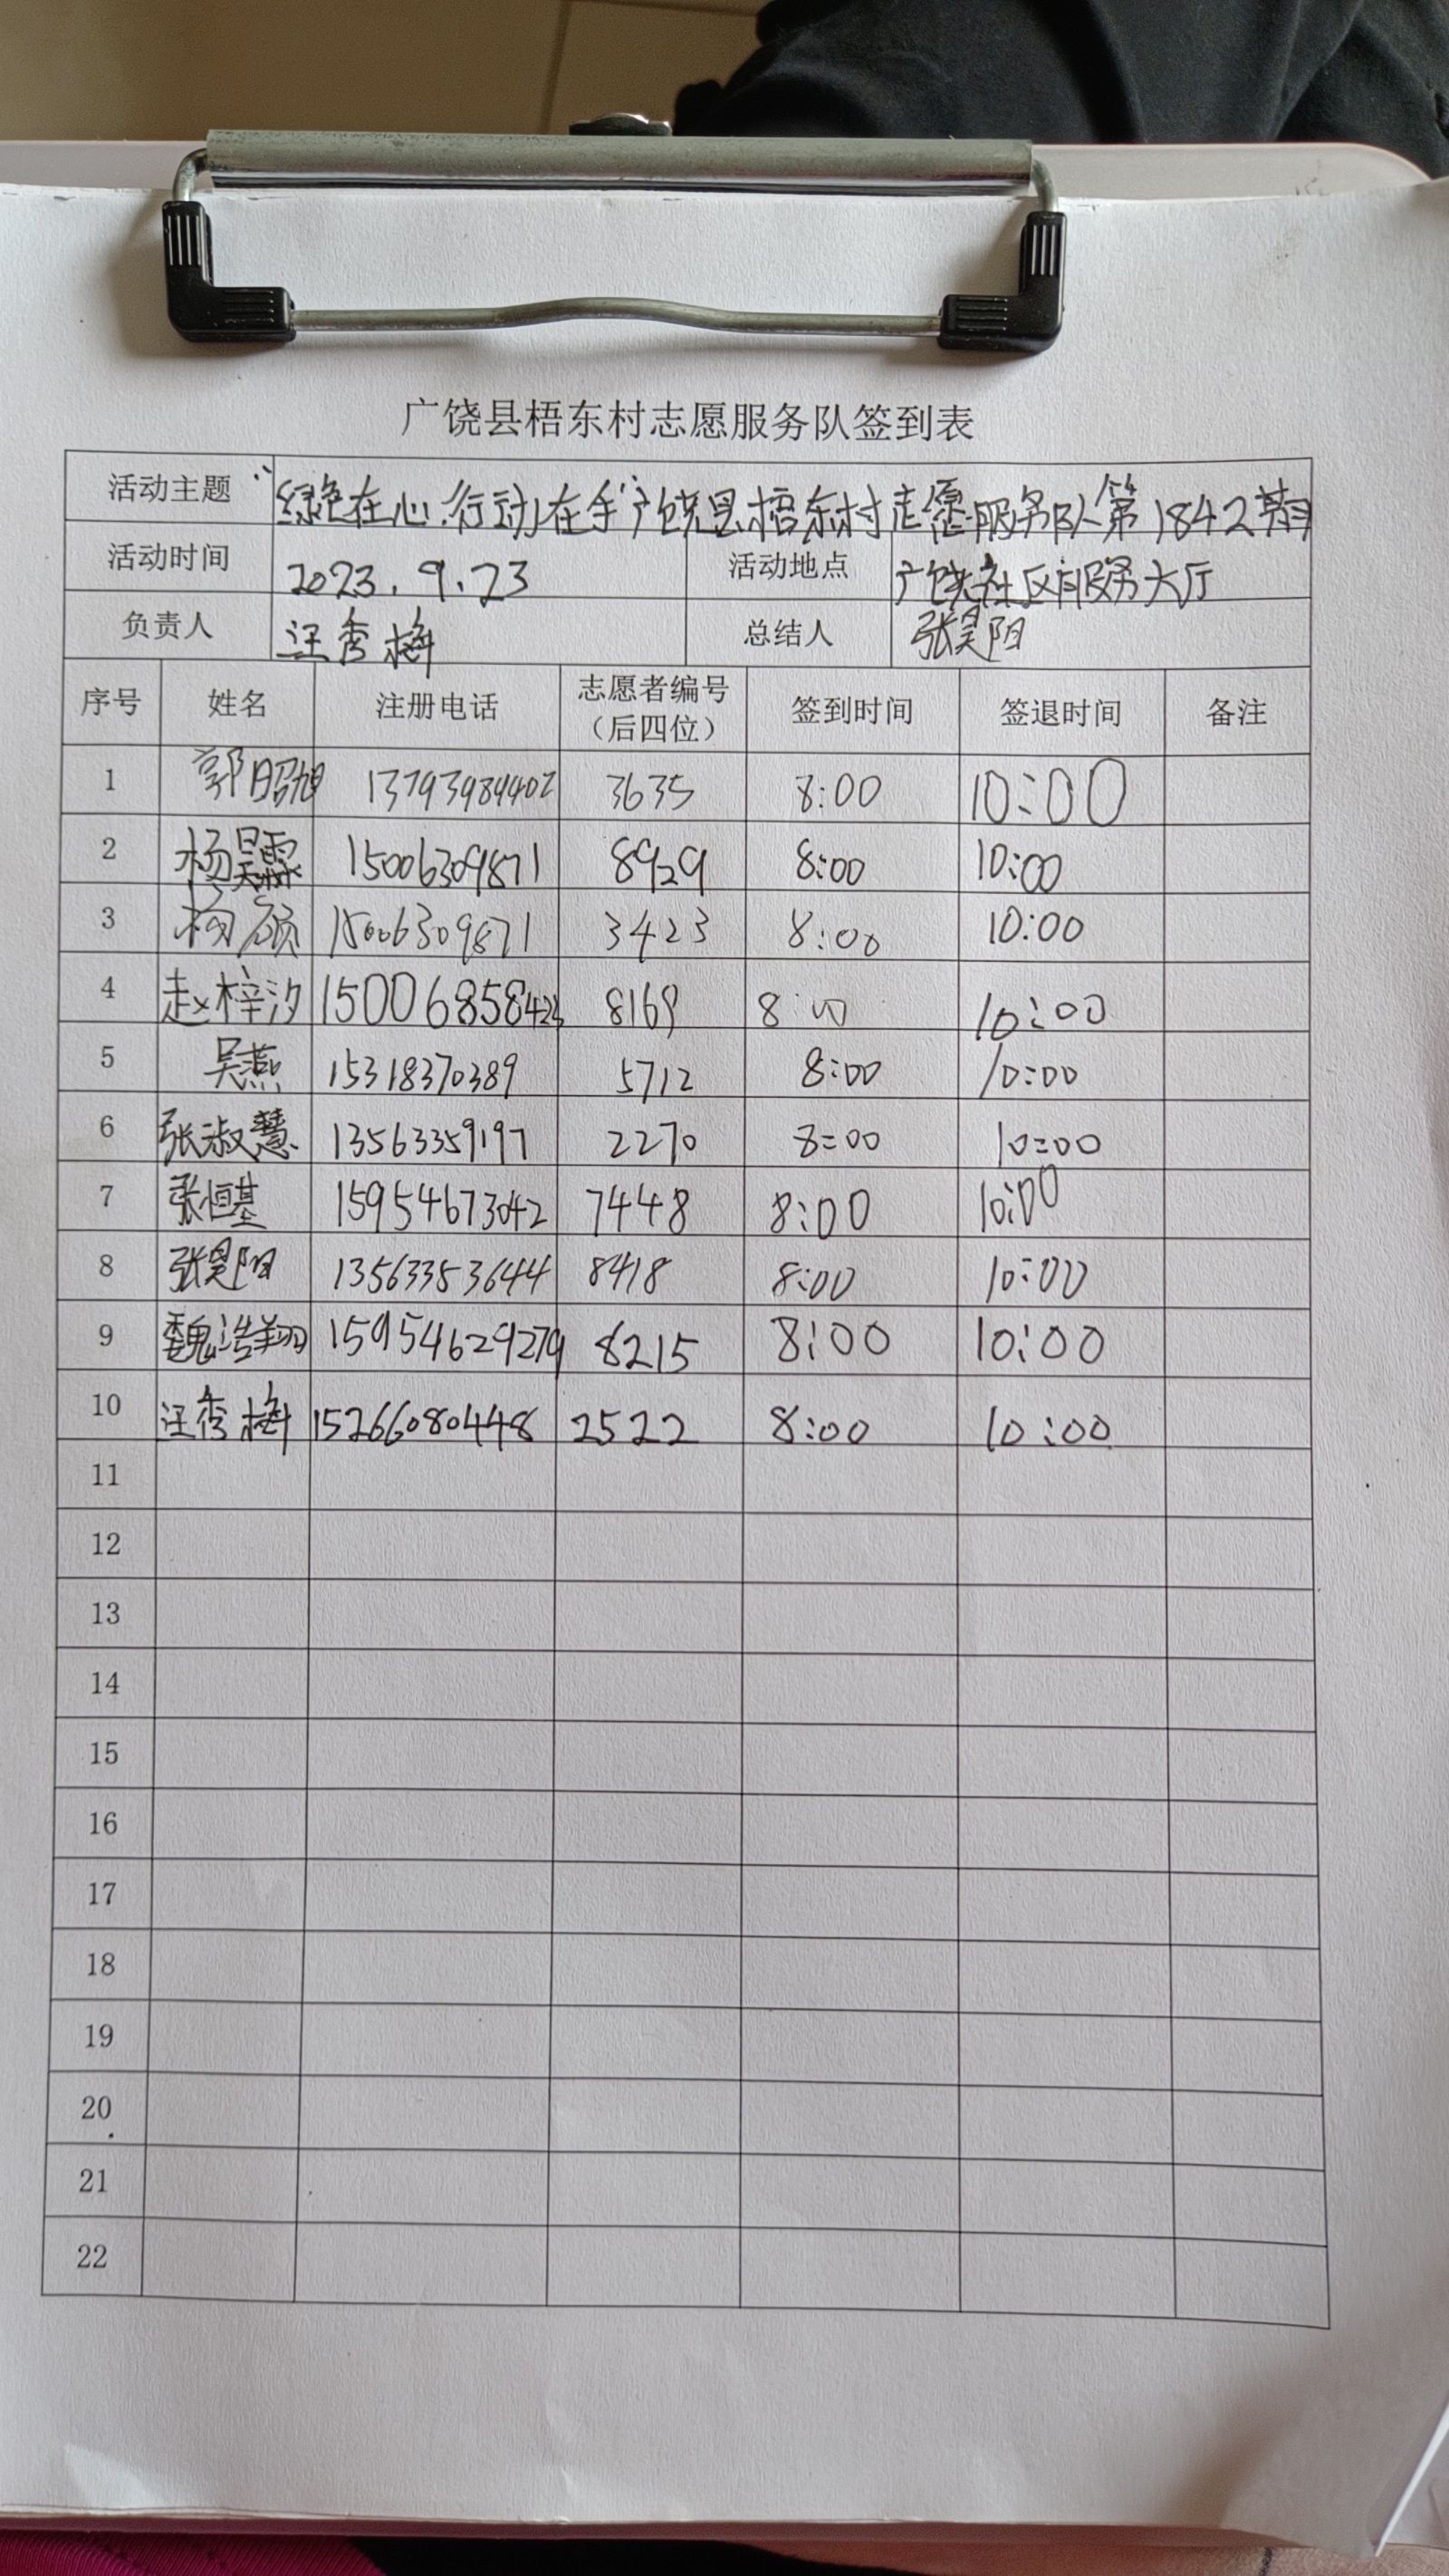 广饶县梧东村志愿服务队签到表
活动主题 “绿色在心,行动在手”广饶县梧东村志愿服务队第1842期
活动时间 2023.9.23 活动地点 广饶社区服务大厅
负责人 汪秀梅 总结人 张昊阳
序号 姓名 注册电话 志愿者编号（后四位） 签到时间 签退时间 备注
1 郭昭旭 13793989402 3635 8:00 10:00
2 杨昊霖 15006309871 8929 8:00 10:00
3 杨硕 15006309871 3423 8:00 10:00
4 赵梓汐 8169 8:00 10:00
5 吴燕 15318370389 5712 8:00 10:00
6 张淑慧 13563359197 2270 8:00 10:00
7 张恒基 15954673042 7448 8:00 10:00
8 张昊阳 13563353644 8418 8:00 10:00
9 魏浩翔 15954629279 8215 8:00 10:00
10 汪秀梅 15266080448 2522 8:00 10:00
11
12
13
14
15
16
17
18
19
20
21
22